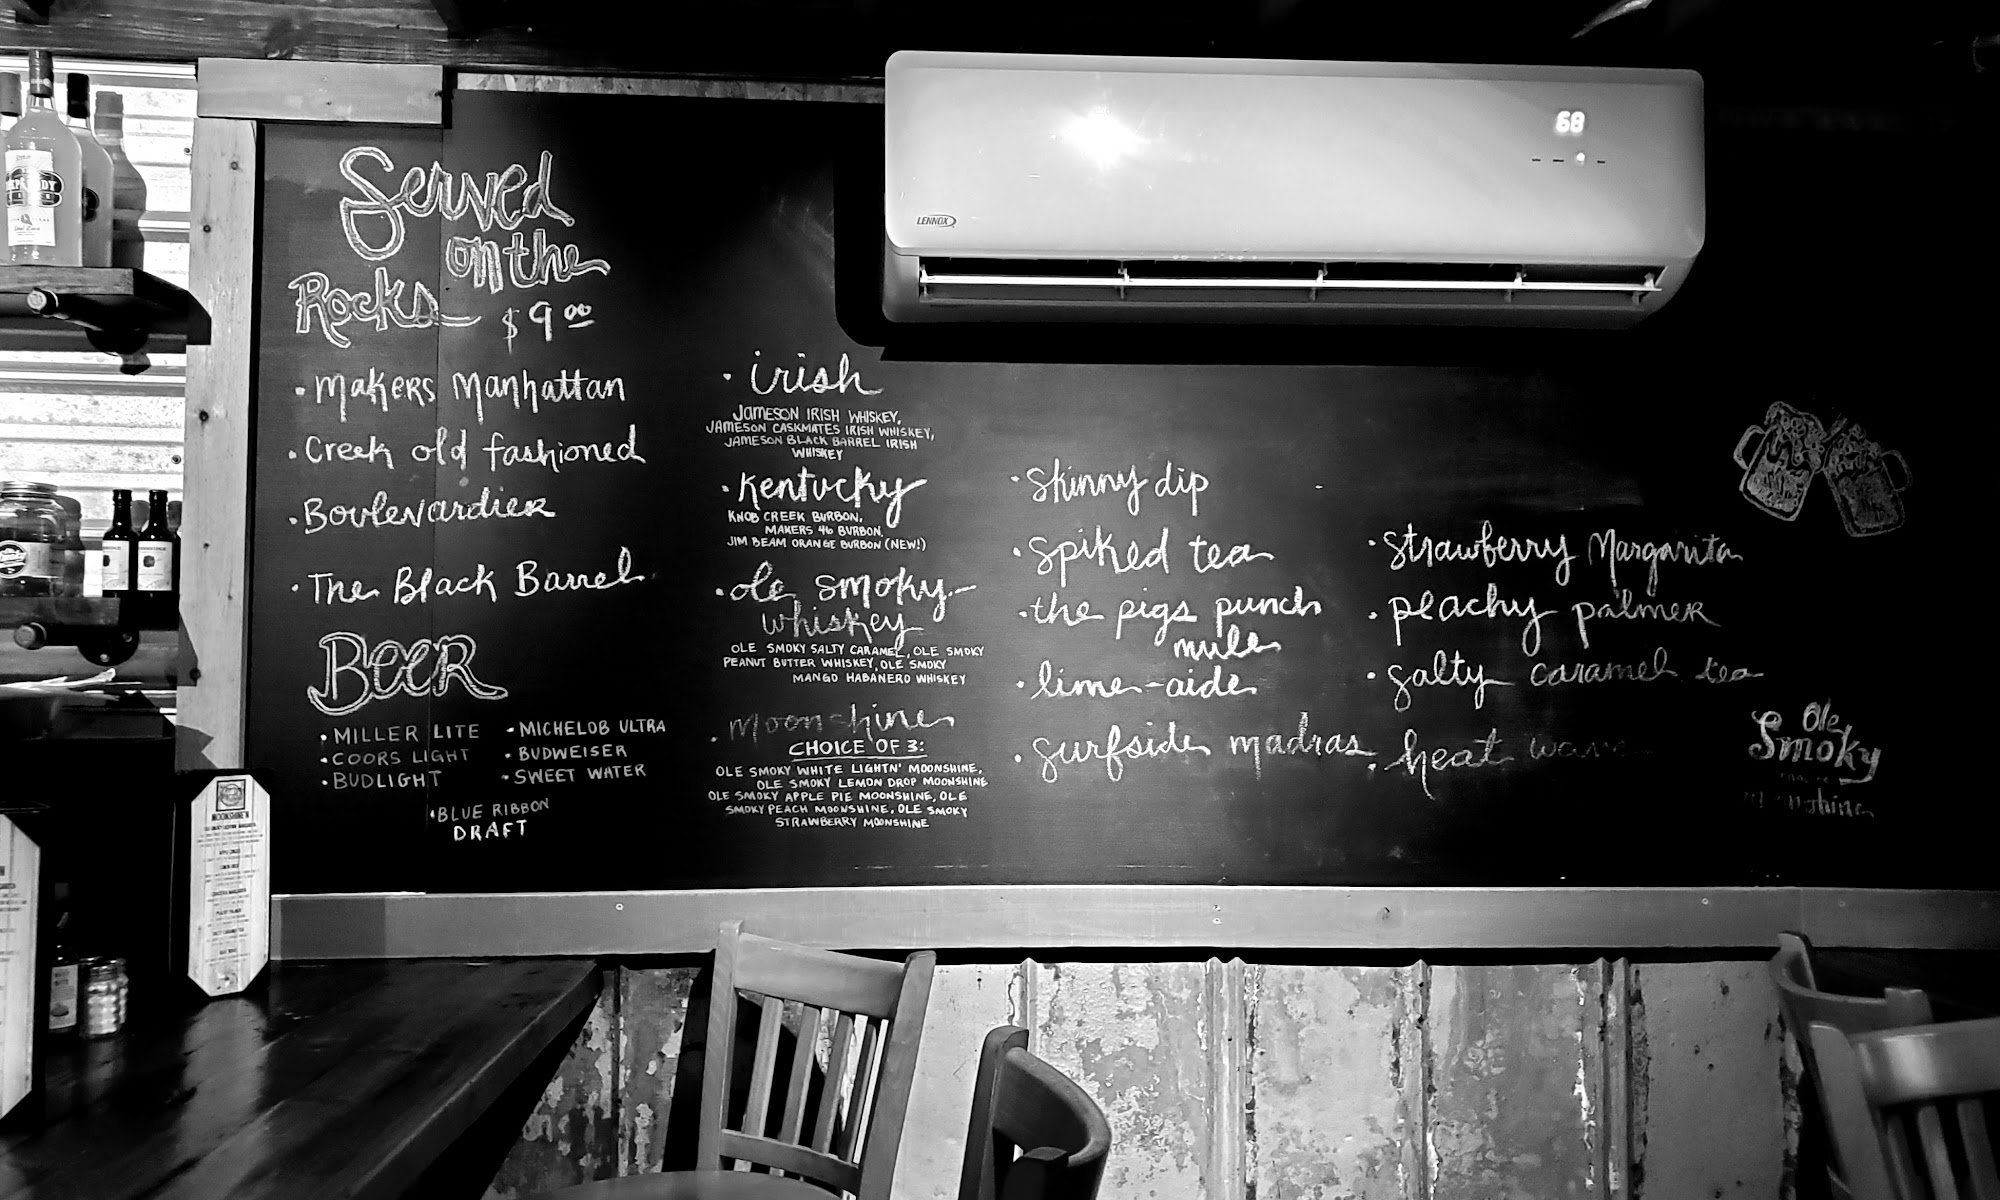 Served
on the
Rocks - $9.00
• Makers Manhattan
• Creek old fashioned
• Boulevardier
• The Black Barrel
BEER
• MILLER LITE
• COORS LIGHT
• BUDLIGHT
• MICHELOB ULTRA
• BUDWEISER
• SWEET WATER
• BLUE RIBBON
DRAFT
• irish
JAMESON IRISH WHISKEY,
JAMESON CASKMATES IRISH WHISKEY,
JAMESON BLACK BARREL IRISH
WHISKEY
• Kentucky
KNOB CREEK BURBON,
MAKERS 46 BURBON,
JIM BEAM ORANGE BURBON (NEW!)
• ole smoky
whiskey
OLE SMOKY SALTY CARAMEL, OLE SMOKY
PEANUT BUTTER WHISKEY, OLE SMOKY
MANGO HABANERO WHISKEY
• moonshine
CHOICE OF 3:
OLE SMOKY WHITE LIGHTN' MOONSHINE,
OLE SMOKY LEMON DROP MOONSHINE
OLE SMOKY APPLE PIE MOONSHINE, OLE
SMOKY PEACH MOONSHINE, OLE SMOKY
STRAWBERRY MOONSHINE
• skinny dip
• spiked tea
• the pigs punch
mule
• lime-aide
• surfside madras
• strawberry Margarita
• peachy palmer
• salty caramel tea
• heat wave
Ole
Smoky
moonshine
LENNOX
68
MOONSHINE'N